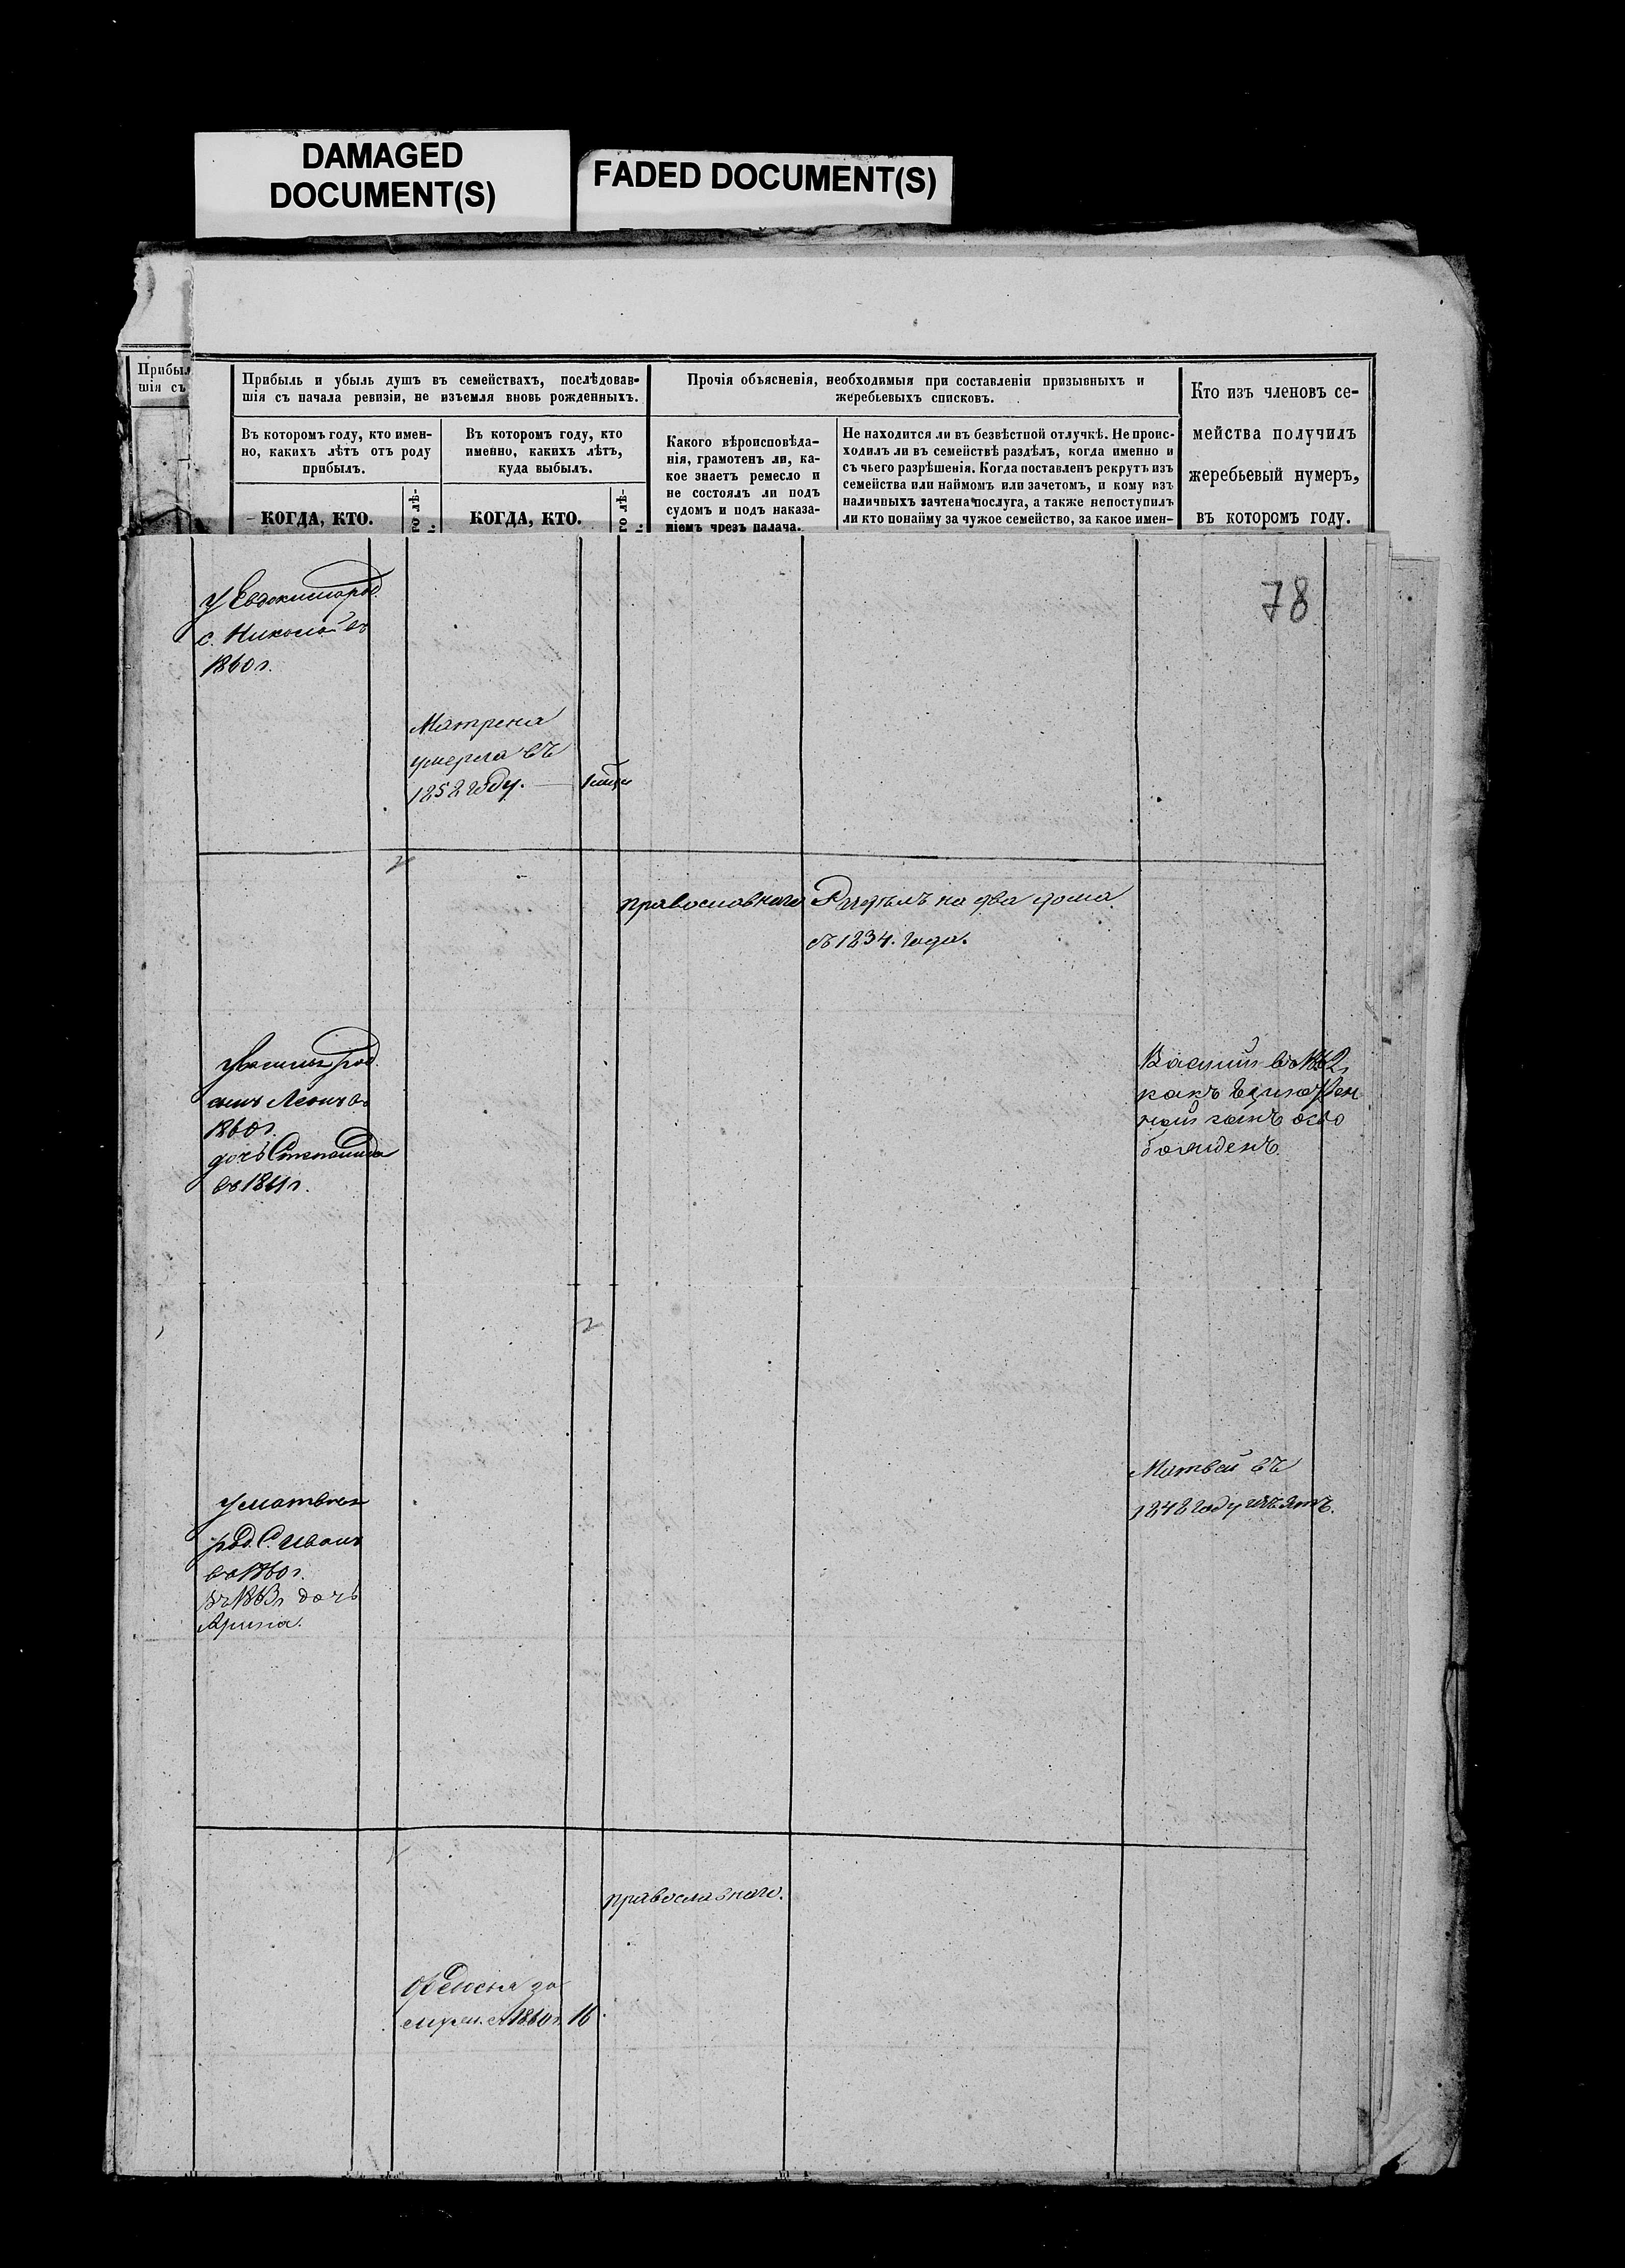 DAMAGED
DOCUMENT(S)
FADED DOCUMENT(S)
Прибыл
шія съ
Прибыль и убыль душъ въ семействахъ, послѣдовав-
шія съ начала ревизіи, не изъемля вновь рожденныхъ.
Въ которомъ году, кто имен-
но, какихъ лѣтъ отъ роду
прибылъ.
КОГДА, КТО.
Въ которомъ году, кто
именно, какихъ лѣтъ,
куда выбылъ.
КОГДА, КТО.
Прочія объясненія, необходимыя при составленіи призывныхъ и
жеребьевыхъ списковъ.
Какого вѣроисповѣда-
нія, грамотенъ ли, ка-
кое знаетъ ремесло и
не состоялъ ли подъ
судомъ и подъ наказа-
ніемъ чрезъ палача.
Не находится ли въ безвѣстной отлучкѣ. Не проис-
ходилъ ли въ семействѣ раздѣлъ, когда именно и
съ чьего разрѣшенія. Когда поставленъ рекрутъ изъ
семейства или наймомъ или зачетомъ, и кому изъ
наличныхъ зачтена послуга, а также непоступилъ
ли кто понайму за чужое семейство, за какое имен-
Кто изъ членовъ се-
мейства получилъ
жеребьевый нумеръ,
въ которомъ году.
78
У Евдокима род.
с. Николай въ
1860 г.
Матрена
умерла въ
1858 году.
православнаго
Раздѣлъ на два дома
съ 1834. года.
у Василья род.
сынъ Леонъ въ
1860 г.
дочь Степанида
въ 1861 г.
Василій въ 1862
какъ
освo
божденъ
Матвей въ
1848 году изъятъ.
у Матвея
род. С. Иванъ
въ 1860 г.
въ 1863 г дочь
Арина.
православнаго.
за
муж. въ 1860 г. 16